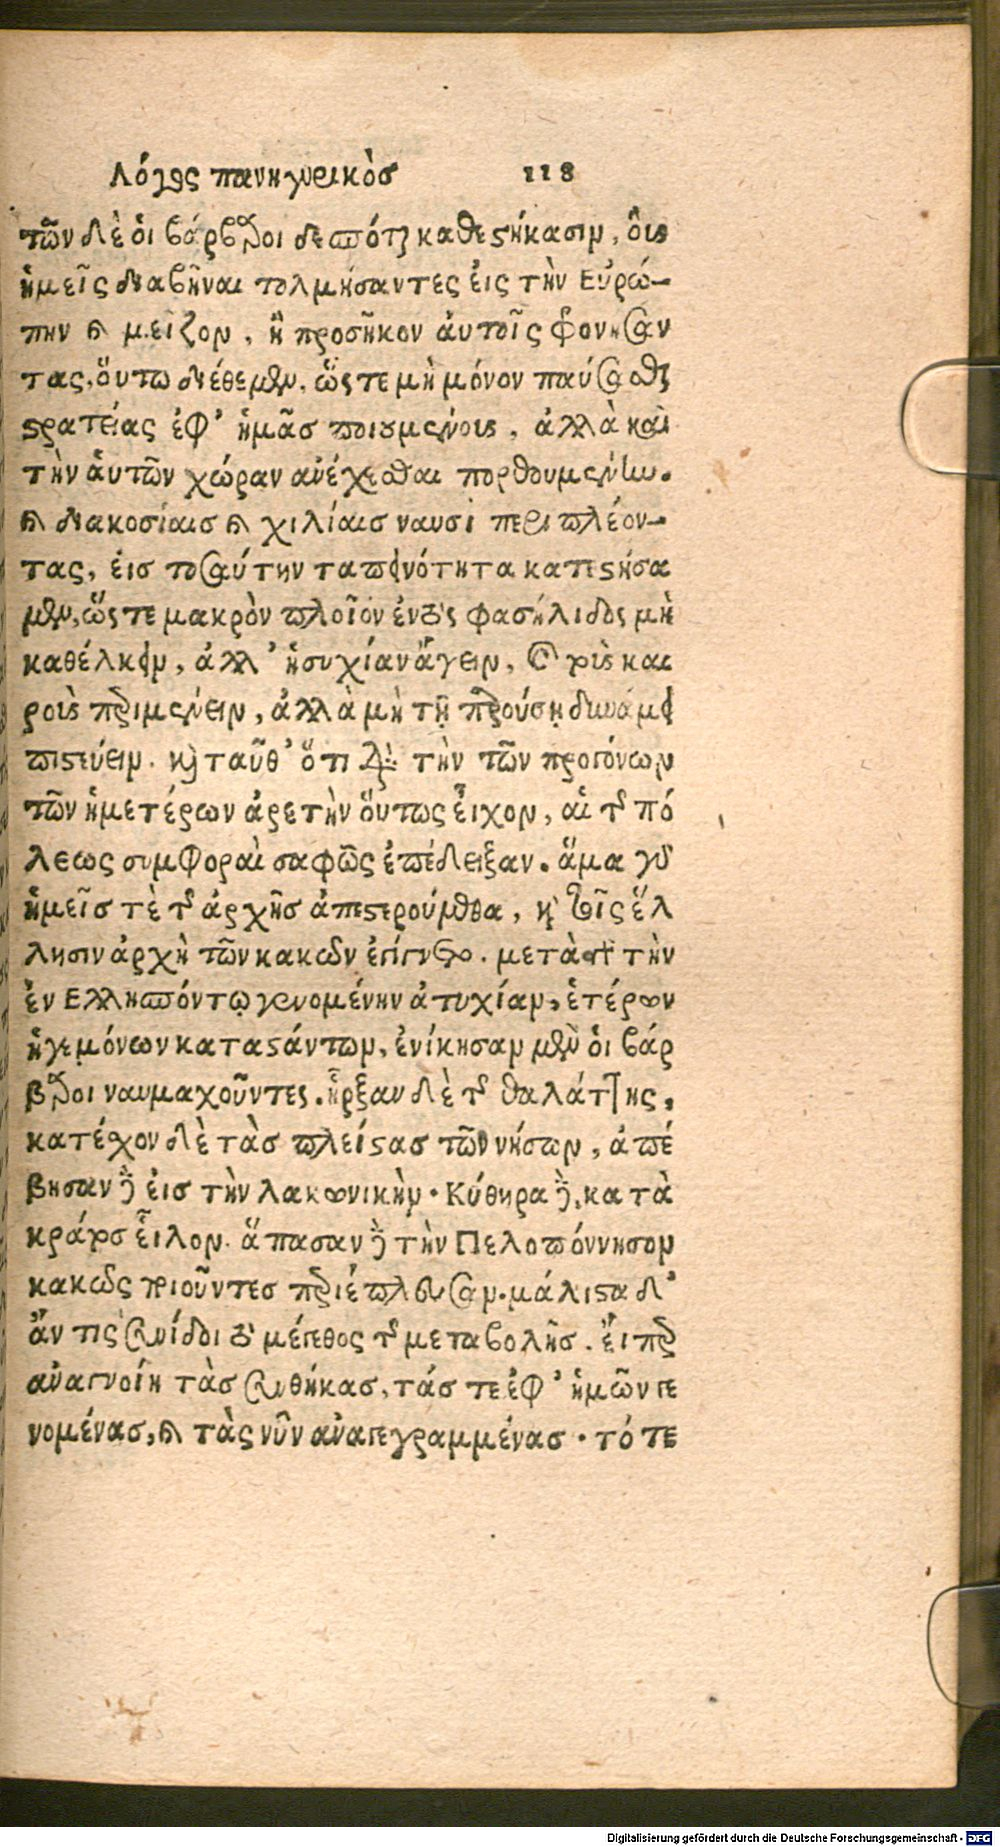 Λόγος πανηγυρικὸς 118
τῶν δὲ ὁι βάρβαροι δεσπόται καθεστήκασιν, ὃυς
ἡμεῖς διαβῆναι τολμήσαντες ἐις τὴν Εὐρώ-
πην καὶ μεῖζον, ἢ προσῆκον ἀυτοῖς φρονήσαν
τας, ὅυτω διέθεμεν, ὥστε μὴ μόνον παύσασθαι
στρατείας ἐφ’ ἡμᾶς ποιουμένους, ἀλλὰ καὶ
τὴν ἁυτῶν χώραν ἀνέχεσθαι πορθουμένην.
καὶ διακοσίαις καὶ χιλίαις ναυσὶ περιπλέον-
τας, ἐις τοσαύτην ταπεινότητα κατεστήσα
μεν, ὥστε μακρὸν πλοῖον ἐντὸς φασήλιδος μὴ
καθέλκειν, ἀλλ’ ἡσυχίαν ἄγειν, καὶ τοὺς και
ροὺς περιμένειν, ἀλλὰ μὴ τῇ παρούσῃ δυνάμει
πιστεύειν. καὶ ταῦθ’ ὅτι διὰ τὴν τῶν προγόνων
τῶν ἡμετέρων ἀρετὴν ὅυτως ἖ιχον, αἱ τῆς πό
λεως συμφοραὶ σαφῶς ἐπέδειξαν. ἅμα γὰρ
ἡμεῖς τὲ τῆς ἀρχῆς ἀπεστερούμεθα, καὶ τοῖς ἕλ
λησιν ἀρχὴ τῶν κακῶν ἐγίγνετο. μετὰ γὰρ τὴν
ἐν Ελλησπόντῳ γενομένην ἀτυχίαν, ἑτέρων
ἡγεμόνων καταστάντων, ἐνίκησαν μὲν ὁι βάρ
βαροι ναυμαχοῦντες. ἦρξαν δὲ τῆς θαλάττης,
κατέχον δὲ τὰς πλείστας τῶν νήσων, ἀπέ
βησαν δὲ ἐις τὴν λακωνικὴν. Κύθηρα δὲ, κατὰ
κράτος εἷλον. ἅπασαν δὲ τὴν Πελοπόννησον
κακῶς ποιοῦντες περιέπλευσαν. μάλιστα δ’
ἄν τις συνίδοι τὸ μέγεθος τῆς μεταβολῆς. ἐι παρ
αναγνοίη τὰς συνθήκας, τάς τε ἐφ’ ἡμῶν γε
νομένας, καὶ τὰς νῦν ἀναγεγραμμένας. τότε
Digitalisierung gefördert durch die Deutsche Forschungsgemeinschaft - DFG